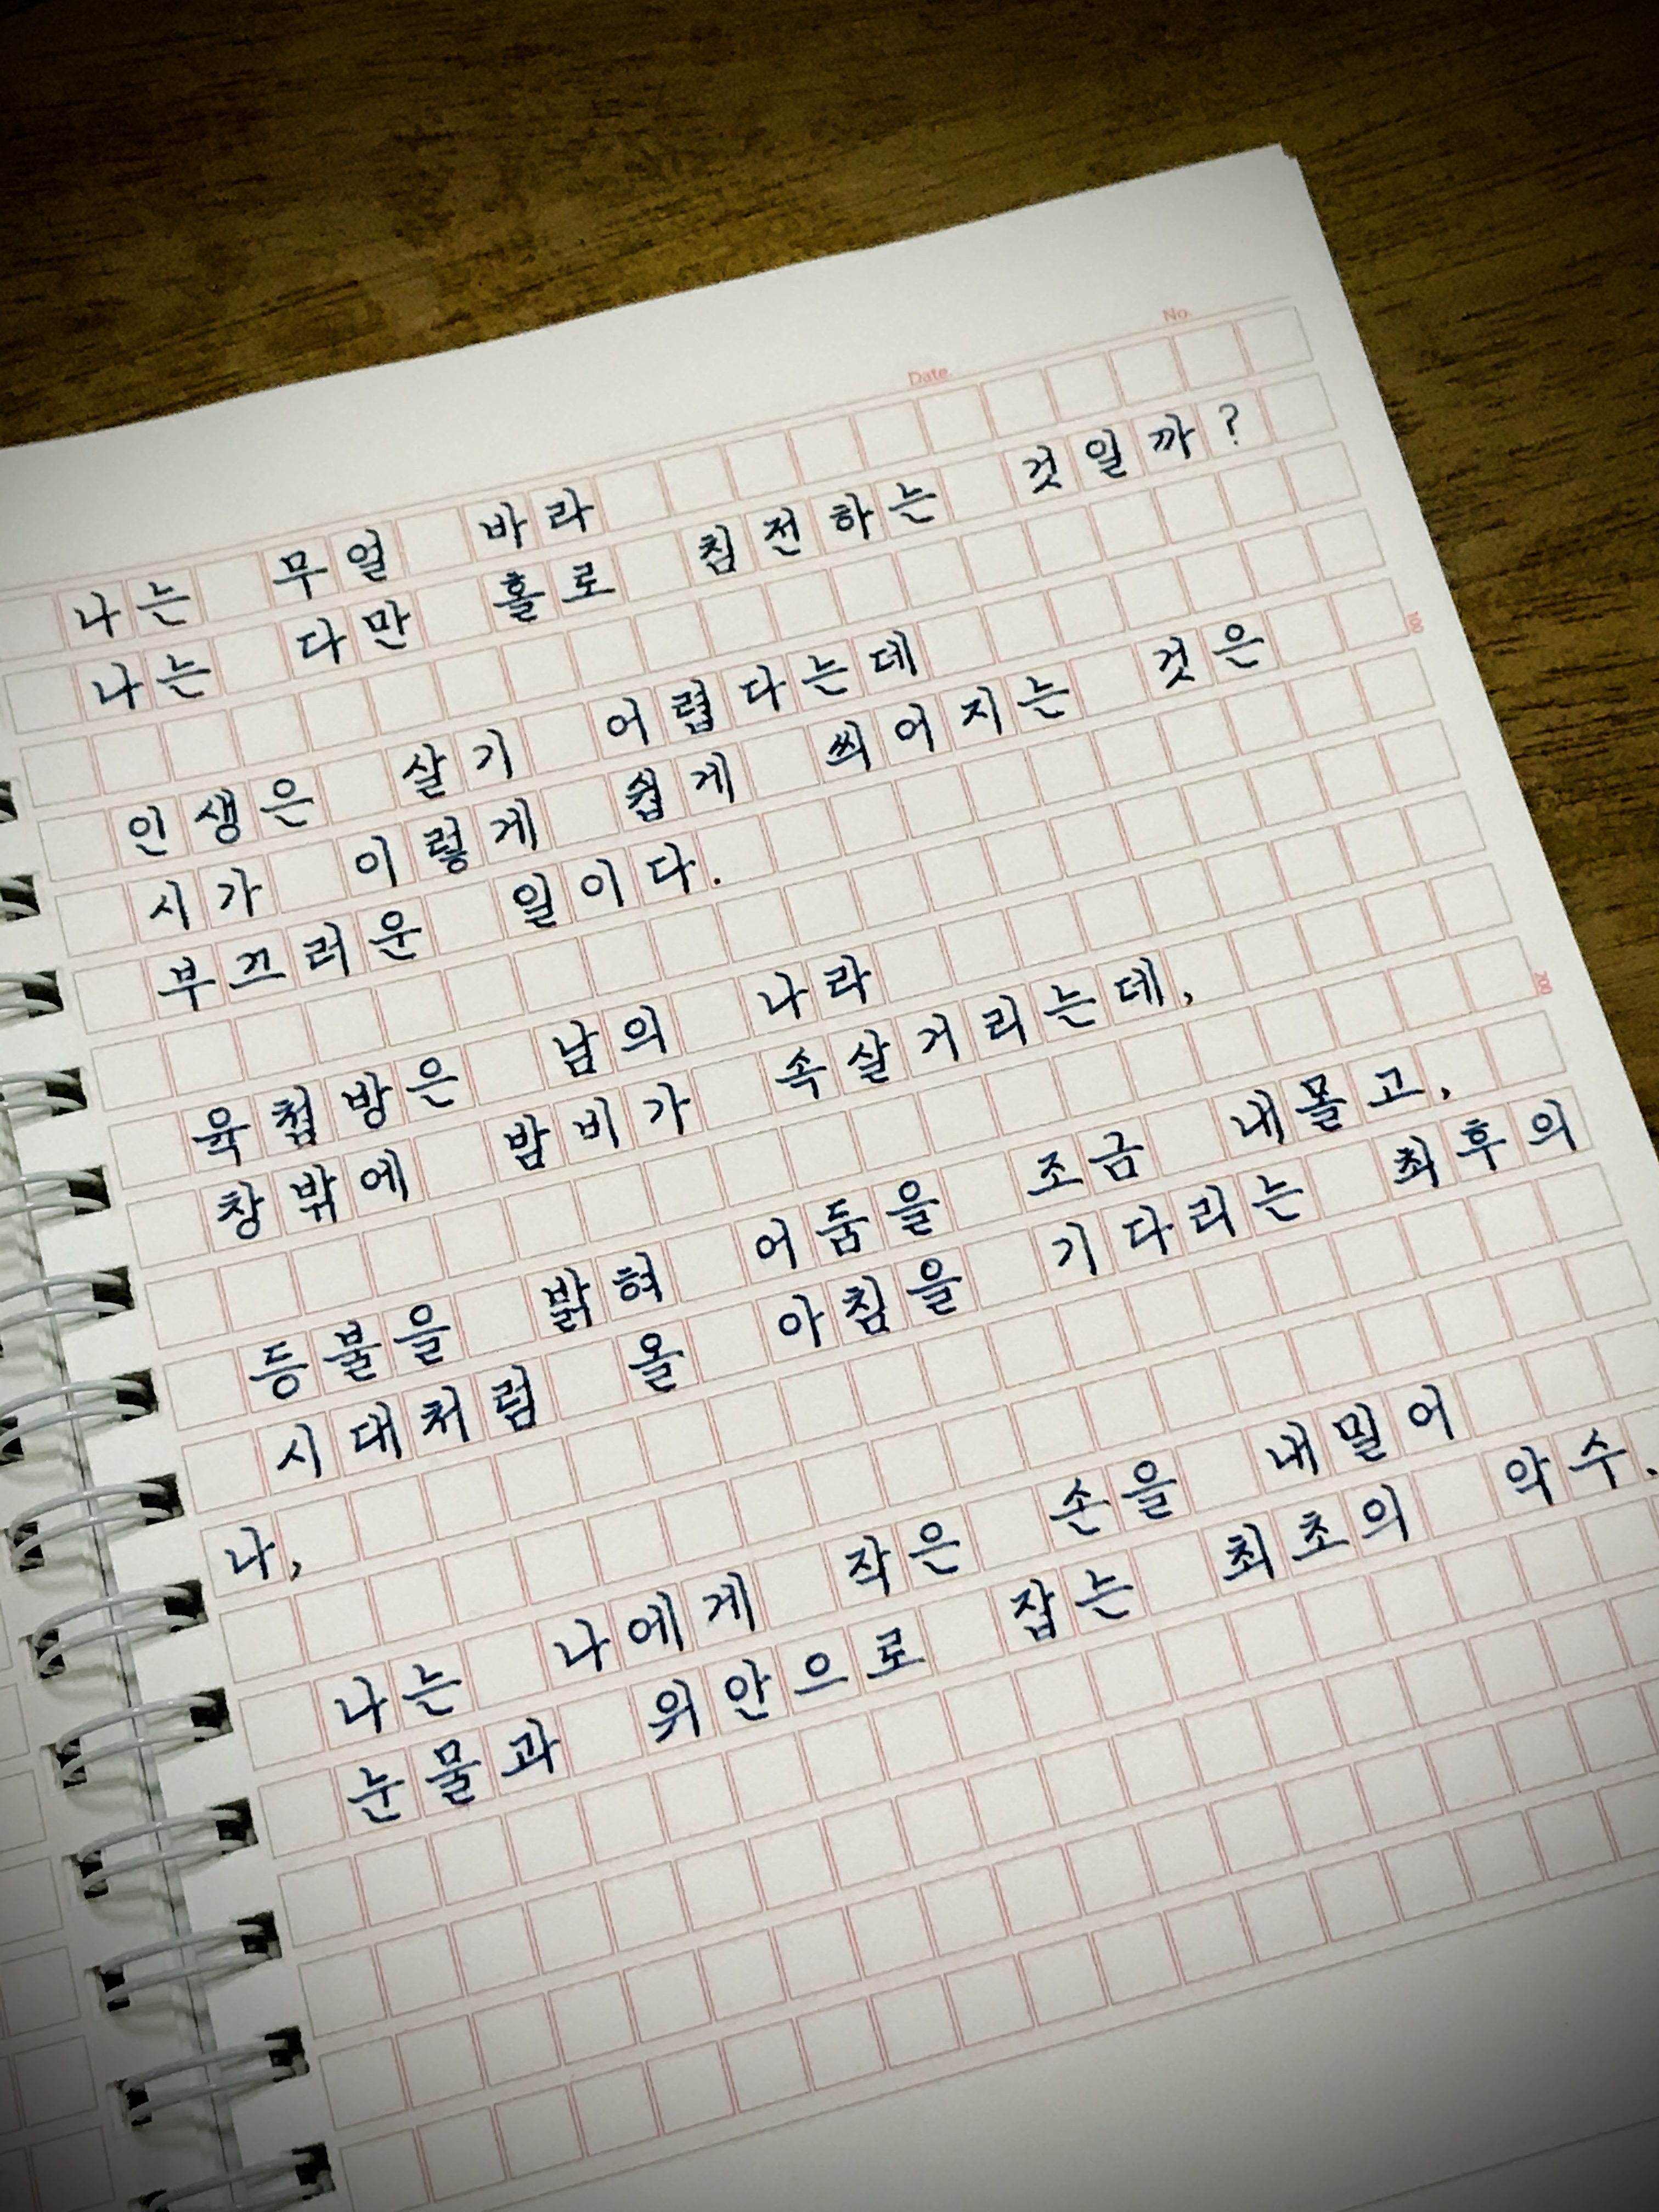 No.
Date.
나는 무얼 바라
나는 다만 홀로 침전하는 것일까?
인생은 살기 어렵다는데
시가 이렇게 쉽게 씌어지는 것은
부끄러운 일이다.
육첩방은 남의 나라
창밖에 밤비가 속살거리는데,
등불을 밝혀 어둠을 조금 내몰고,
시대처럼 올 아침을 기다리는 최후의
나,
나는 나에게 작은 손을 내밀어
눈물과 위안으로 잡는 최초의 악수.
100
200